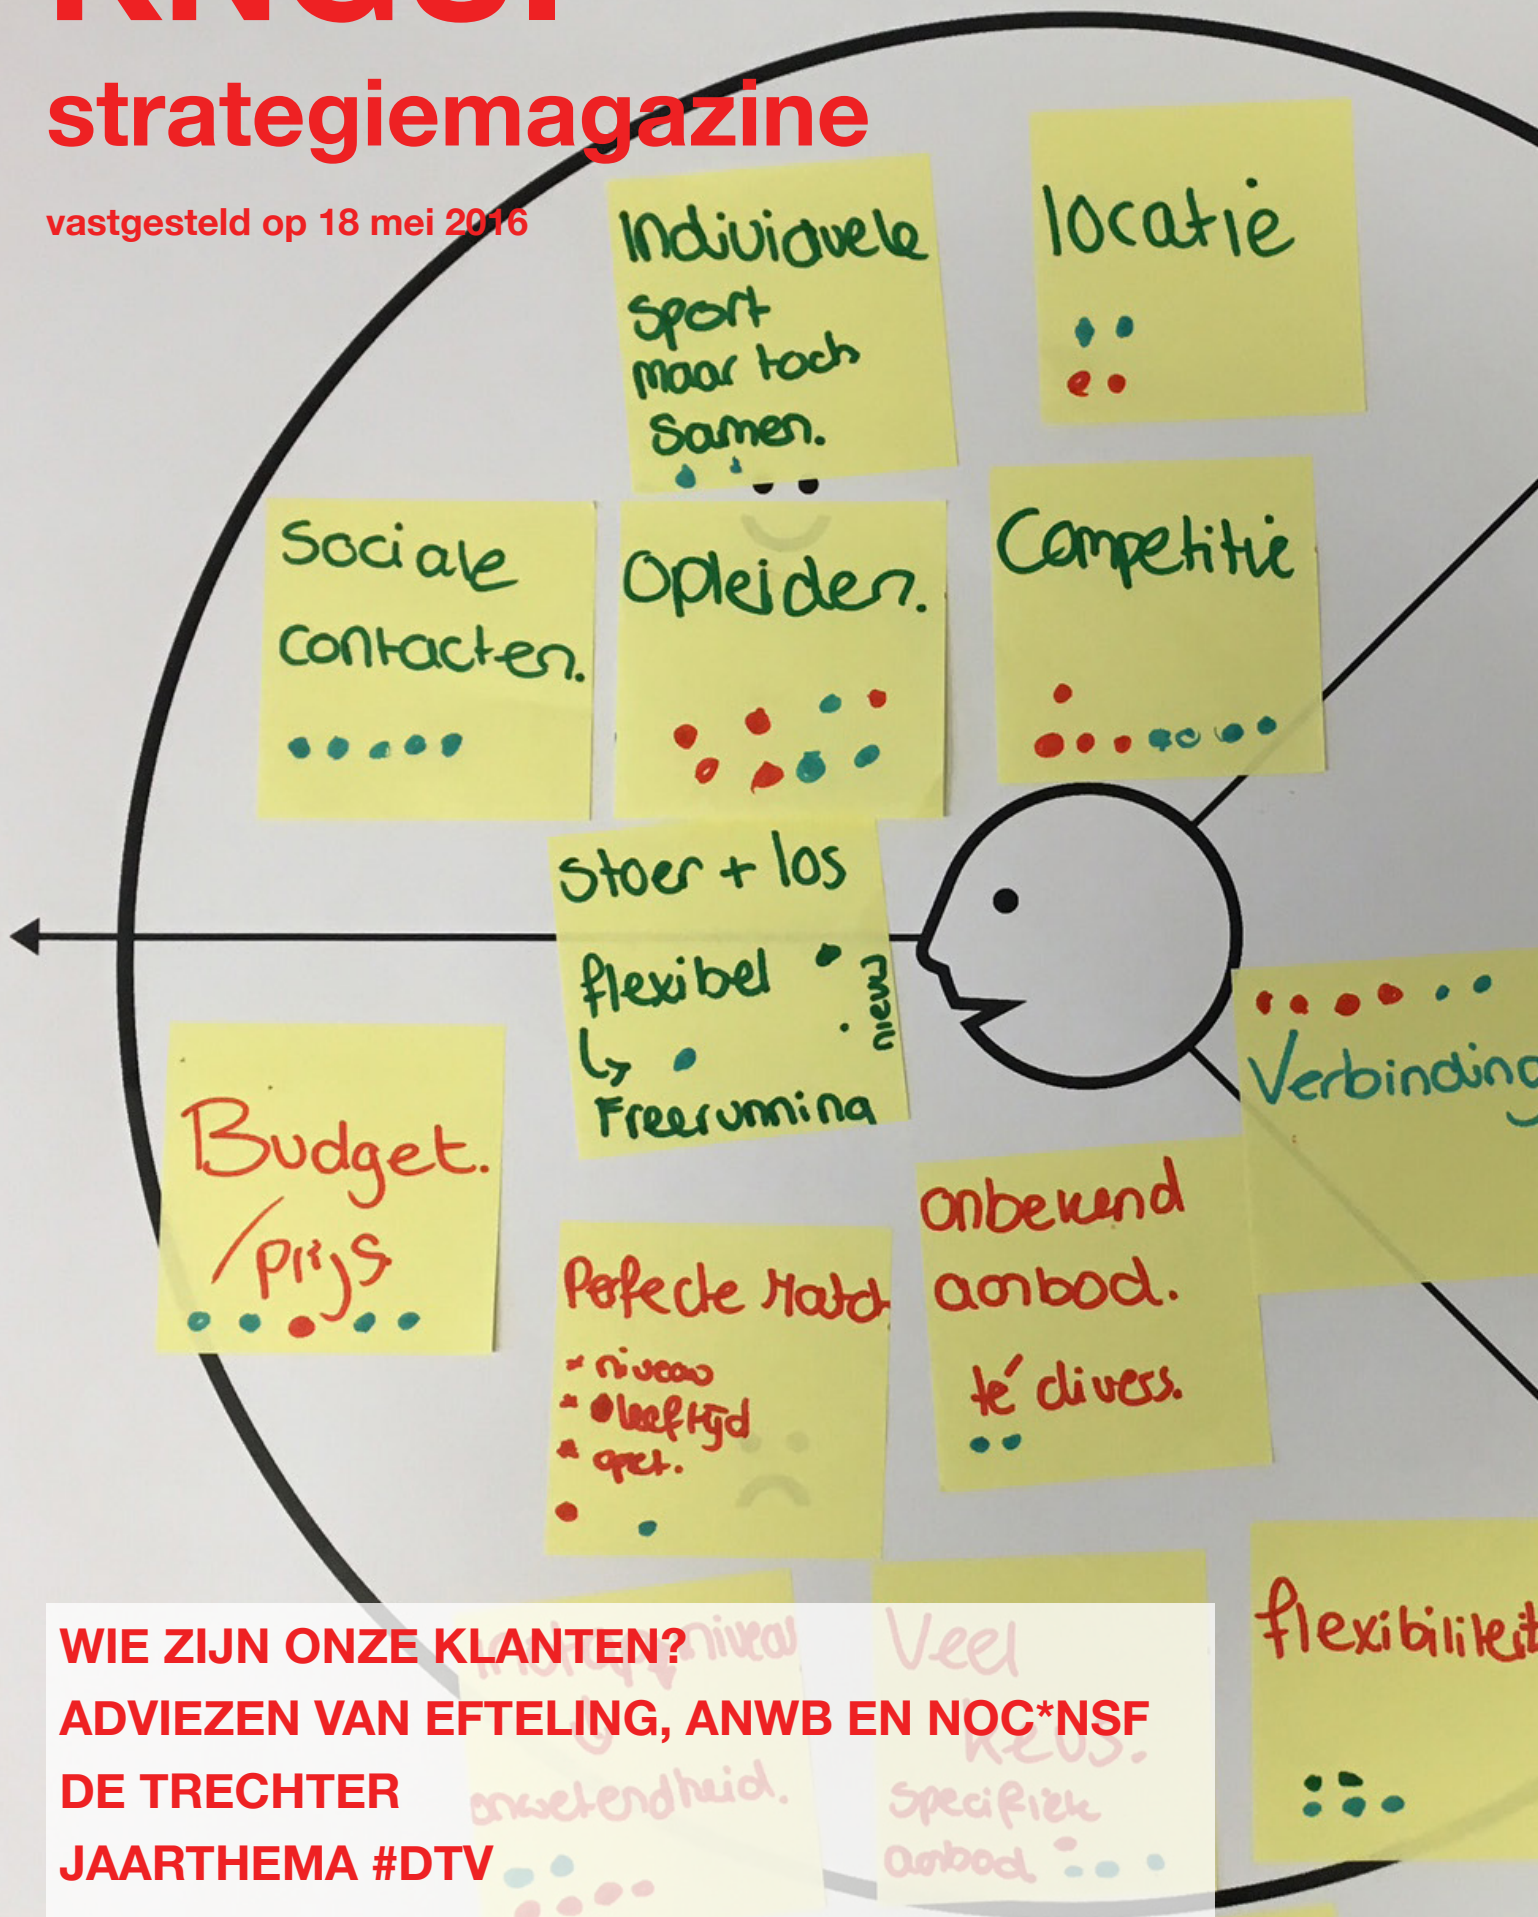 strategiemagazine
vastgesteld op 18 mei 2016
Individuele
sport
maar toch
samen.
locatie
Sociale
contacten.
Opleiden.
Competitie
Stoer + los
flexibel
nieuw
Freerunning
Verbinding
Budget.
/prijs
Perfecte Match
* niveau
* leeftijd
* opet.
onbekend
aanbod.
té divers.
flexibiliteit
Instapniveau
onwetendheid.
Veel
keus.
specifiek
aanbod
WIE ZIJN ONZE KLANTEN?
ADVIEZEN VAN EFTELING, ANWB EN NOC*NSF
DE TRECHTER
JAARTHEMA #DTV